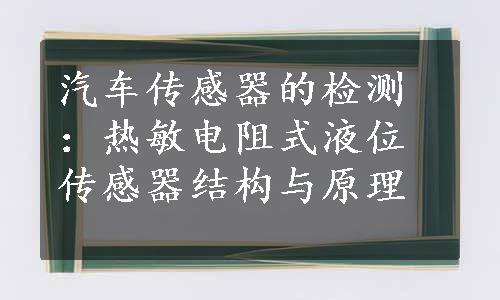 汽车传感器的检测
：热敏电阻式液位
传感器结构与原理